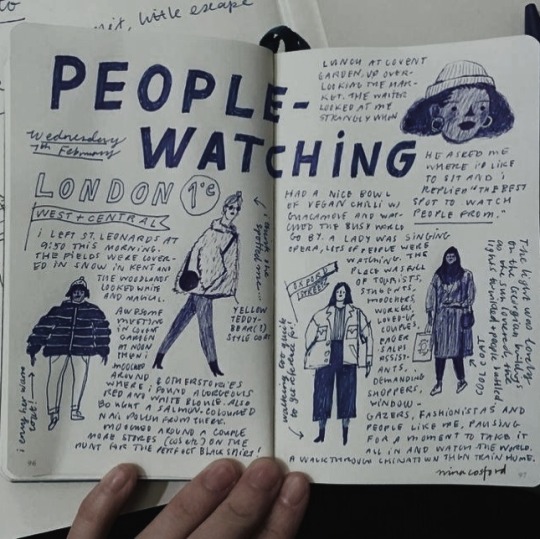 nit, little escape
PEOPLE-
WATCHING
Wednesday
7th February
LONDON 1°c
WEST + CENTRAL
I LEFT ST. LEONARDS AT
9:50 THIS MORNING.
THE FIELDS WERE COVER-
ED IN SNOW IN KENT AND
THE WOODLANDS
LOOKED WHITE
AND MAGICAL.
AWESOME
MEETING
IN COVENT
GARDEN
AT NOON
THEN I
MOOCHED
AROUND & OTHER STORIES
WHERE I FOUND A GORGEOUS
RED AND WHITE BLOUSE. ALSO
BOUGHT A SALMON-COLOURED
NAIL POLISH FROM THERE.
MOOCHED AROUND A COUPLE
MORE STORES (COS ETC) ON THE
HUNT FOR THE PERFECT BLACK SHIRT!
i envy her warm
coat!
i think she
spotted me...
YELLOW
TEDDY-
BEAR(!)
STYLE COAT
96
LUNCH AT COVENT
GARDEN, UP OVER-
LOOKING THE MAR-
KET. THE WAITER
LOOKED AT ME
STRANGELY WHEN
HE ASKED ME
WHERE I'D LIKE
TO SIT AND I
REPLIED "THE BEST
SPOT TO WATCH
PEOPLE FROM."
HAD A NICE BOWL
OF VEGAN CHILLI W/
GUACAMOLE AND WAT-
CHED THE BUSY WORLD
GO BY. A LADY WAS SINGING
OPERA, LOTS OF PEOPLE WERE
WATCHING. THE
PLACE WAS FULL
OF TOURISTS,
STUDENTS,
MOOCHERS,
WORKERS,
LOVED-UP
COUPLES,
EAGER
SALES
ASSIST-
ANTS,
DEMANDING
SHOPPERS,
WINDOW-
GAZERS, FASHIONISTAS AND
PEOPLE LIKE ME, PAUSING
FOR A MOMENT TO TAKE IT
ALL IN AND WATCH THE WORLD.
A WALK THROUGH CHINATOWN THEN TRAIN HOME.
OXFORD
STREET
walking too quick
to get the detail for!
COOL COAT
The light was lovely
on the Georgian buildings
as the sun lowered, the
nina cosford
97